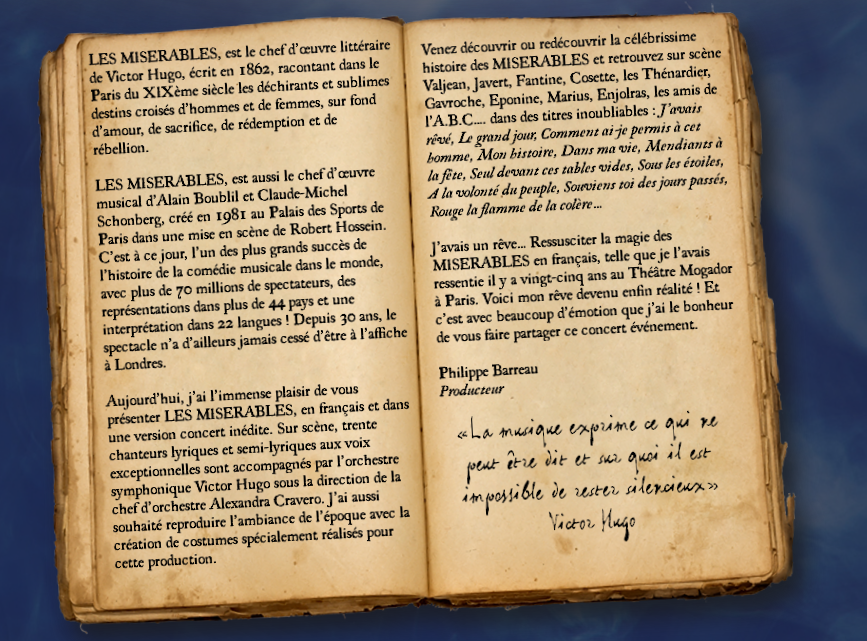 LES MISERABLES, est le chef d'œuvre littéraire
de Victor Hugo, écrit en 1862, racontant dans le
Paris du XIXème siècle les déchirants et sublimes
destins croisés d'hommes et de femmes, sur fond
d'amour, de sacrifice, de rédemption et de
rébellion.
LES MISERABLES, est aussi le chef d'œuvre
musical d'Alain Boublil et Claude-Michel
Schonberg, créé en 1981 au Palais des Sports de
Paris dans une mise en scène de Robert Hossein.
C'est à ce jour, l'un des plus grands succès de
l'histoire de la comédie musicale dans le monde,
avec plus de 70 millions de spectateurs, des
représentations dans plus de 44 pays et une
interprétation dans 22 langues ! Depuis 30 ans, le
spectacle n'a d'ailleurs jamais cessé d'être à l'affiche
à Londres.
Aujourd'hui, j'ai l'immense plaisir de vous
présenter LES MISERABLES, en français et dans
une version concert inédite. Sur scène, trente
chanteurs lyriques et semi-lyriques aux voix
exceptionnelles sont accompagnés par l'orchestre
symphonique Victor Hugo sous la direction de la
chef d'orchestre Alexandra Cravero. J'ai aussi
souhaité reproduire l'ambiance de l'époque avec la
création de costumes spécialement réalisés pour
cette production.
Venez découvrir ou redécouvrir la célébrissime
histoire des MISERABLES et retrouvez sur scène
Valjean, Javert, Fantine, Cosette, les Thénardier,
Gavroche, Eponine, Marius, Enjolras, les amis de
l'A.B.C.... dans des titres inoubliables : J'avais
rêvé, Le grand jour, Comment ai-je permis à cet
homme, Mon histoire, Dans ma vie, Mendiants à
la fête, Seul devant ces tables vides, Sous les étoiles,
A la volonté du peuple, Souviens toi des jours passés,
Rouge la flamme de la colère...
J'avais un rêve... Ressusciter la magie des
MISERABLES en français, telle que je l'avais
ressentie il y a vingt-cinq ans au Théâtre Mogador
à Paris. Voici mon rêve devenu enfin réalité ! Et
c'est avec beaucoup d'émotion que j'ai le bonheur
de vous faire partager ce concert événement.
Philippe Barreau
Producteur
«La musique exprime ce qui ne
peut être dit et sur quoi il est
impossible de rester silencieux»
Victor Hugo